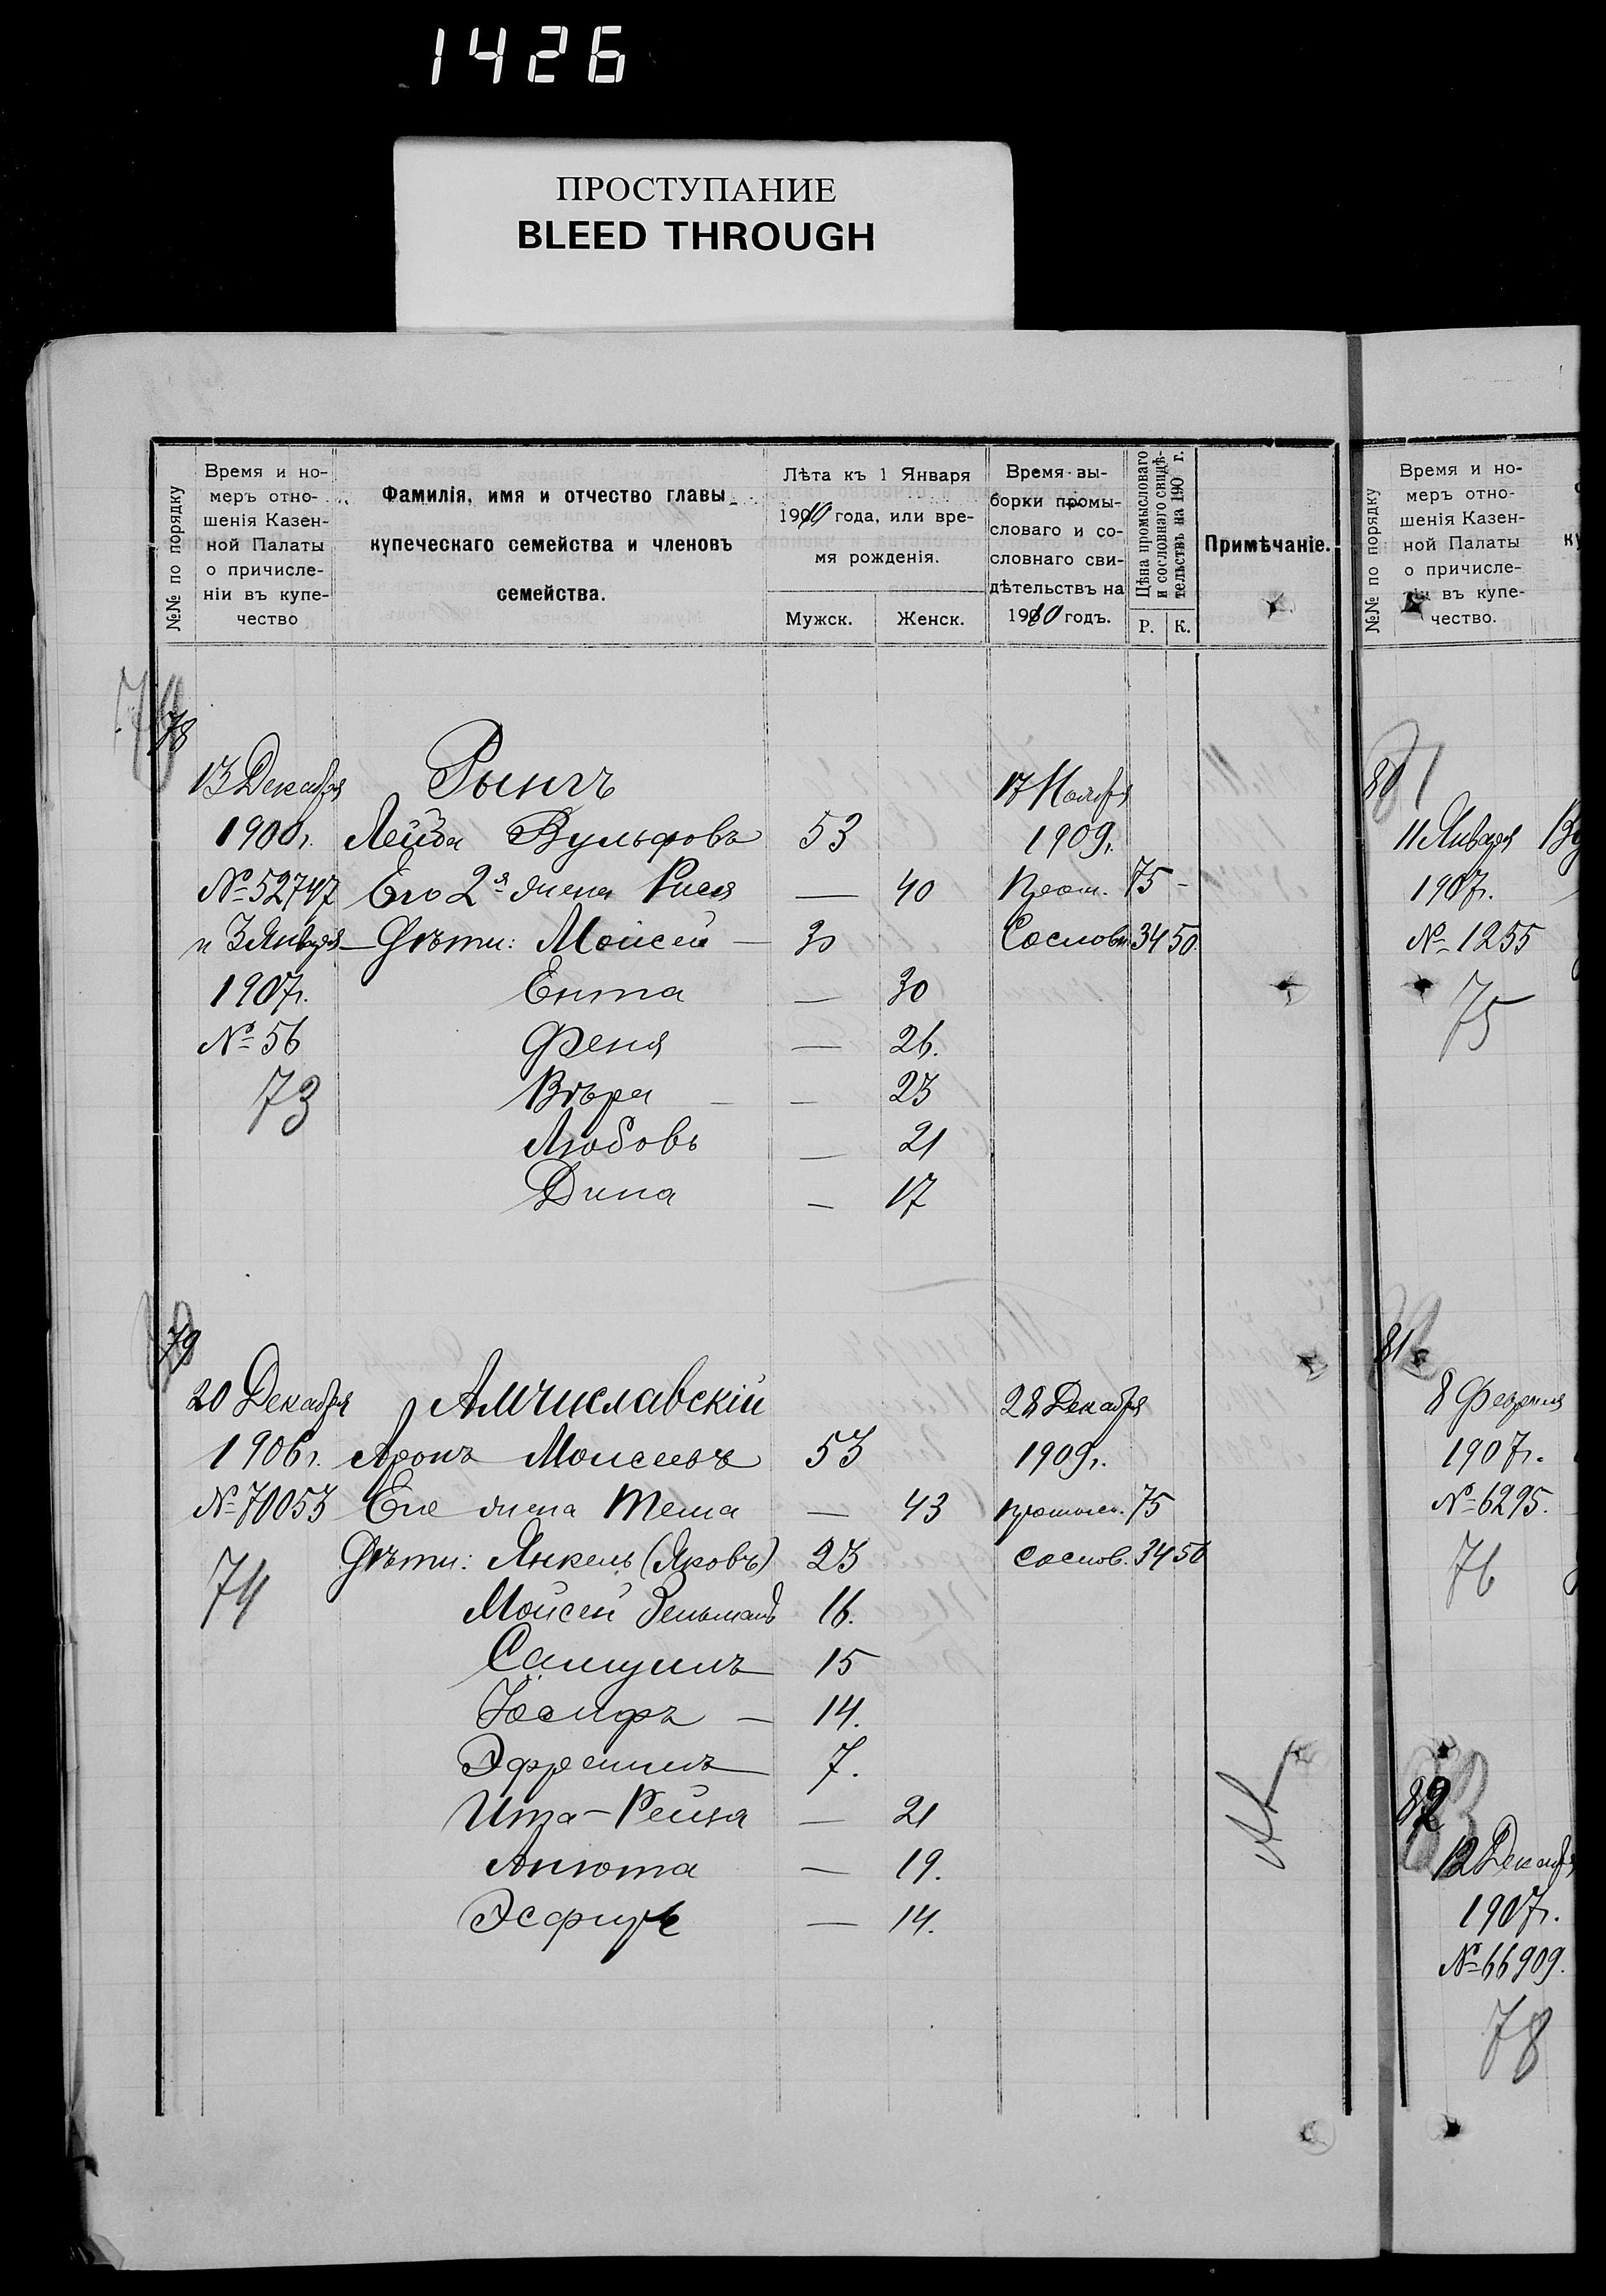 1426
ПРОСТУПАНИЕ
BLEED THROUGH
№№ по порядку
Время и но-
меръ отно-
шенія Казен-
ной Палаты
о причисле-
ніи въ купе-
чество
Фамилія, имя и отчество главы
купеческаго семейства и членовъ
семейства.
Лѣта къ 1 Января
1910 года, или вре-
мя рожденія.
Мужск. Женск.
Время вы-
борки промы-
словаго и со-
словнаго сви-
дѣтельствъ на
1910 годъ.
Цѣна промысловаго
и сословнаго свидѣ-
тельствъ на 190 г.
Р. К.
Примѣчаніе.
78
13 Декабря Рынгъ 17 Ноября
1900г. Лейба Вульфовъ 53 1909г.
№ 52747 Его 2я жена Рися — 40 Пром. 75 -
и 3 Января Дѣти: Моисей — 30 Сословн. 34 50
1907г. Ента — 30
№ 56 Феня — 26.
73 Вѣра — 23
Любовь — 21
Дина — 17
79
20 Декабря Амчиславскій 28 Декабря
1906г. Аронъ Моисеевъ 53 1909г.
№ 70053 Его жена Теша — 43 промысл. 75
74 Дѣти: Янкель (Яковъ) 23 сослов. 34 50
Мойсей Зельманъ 16.
Самуилъ 15
Іосифъ — 14.
Эфроимъ 7.
Ита-Рейза — 21
Анюта — 19.
Эсфирь — 14.
№№ по порядку
Время и но-
меръ отно-
шенія Казен-
ной Палаты
о причисле-
ніи въ купе-
чество.
80
11 Января
1907г.
№ 1255
75
81
8 Февраля
1907г.
№ 6295.
76
82
12 Декабря
1907г.
№ 66909.
78